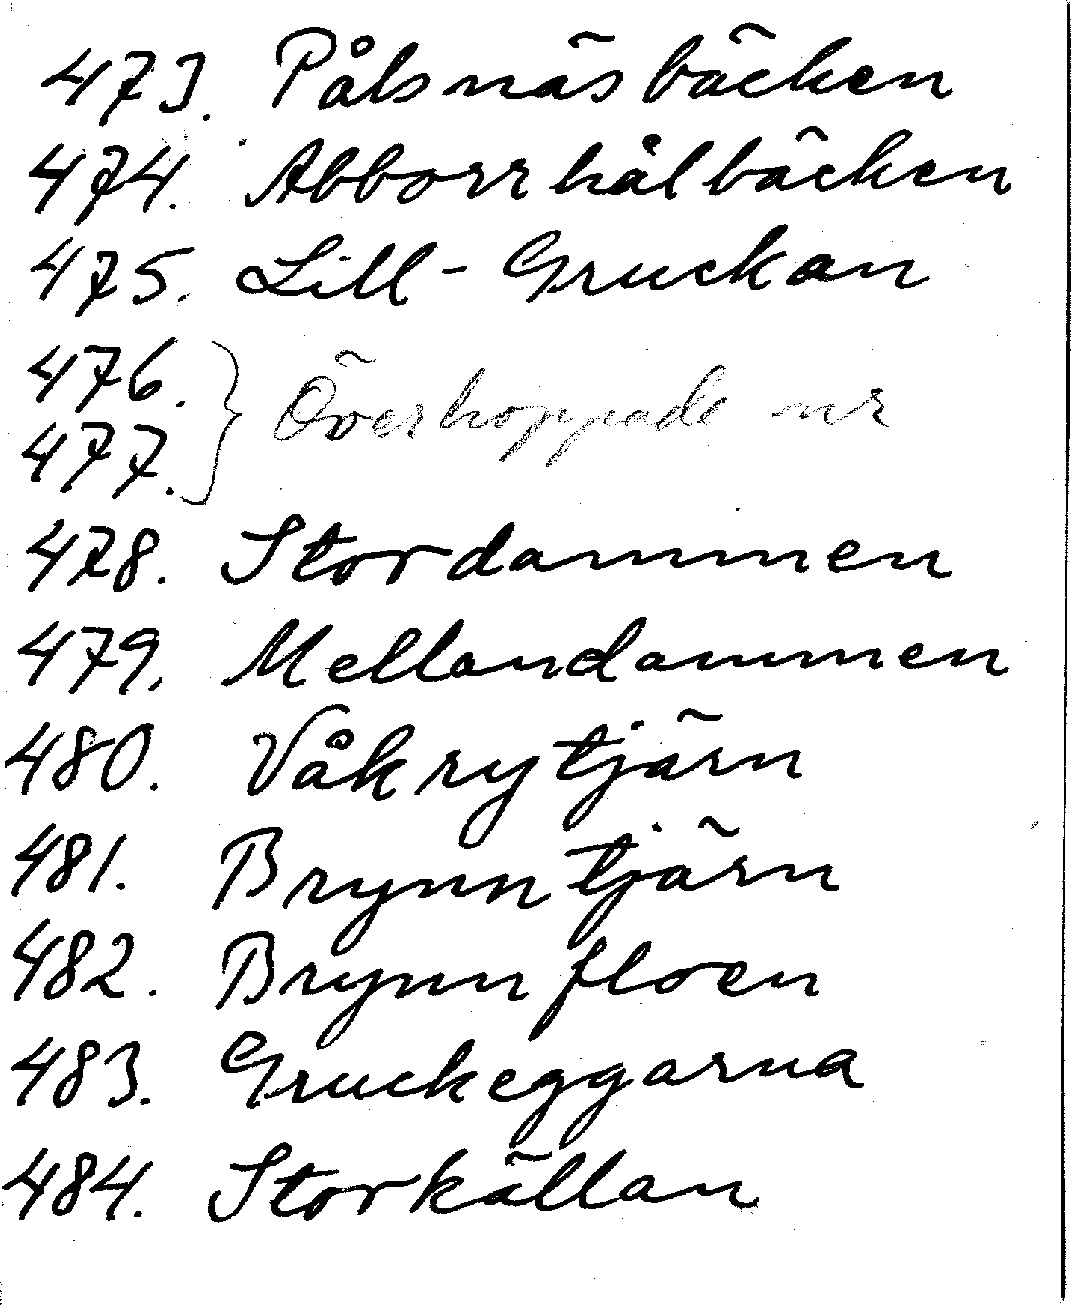 473. Pålsnäsbäcken
474. Abborrhålbäcken
475. Lill-Gruckan
476. } Överhoppade nr
477.
478. Stordammen
479. Mellandammen
480. Våkrytjärn
481. Brynntjärn
482. Brynnfloen
483. Gruckeggarna
484. Storkällan